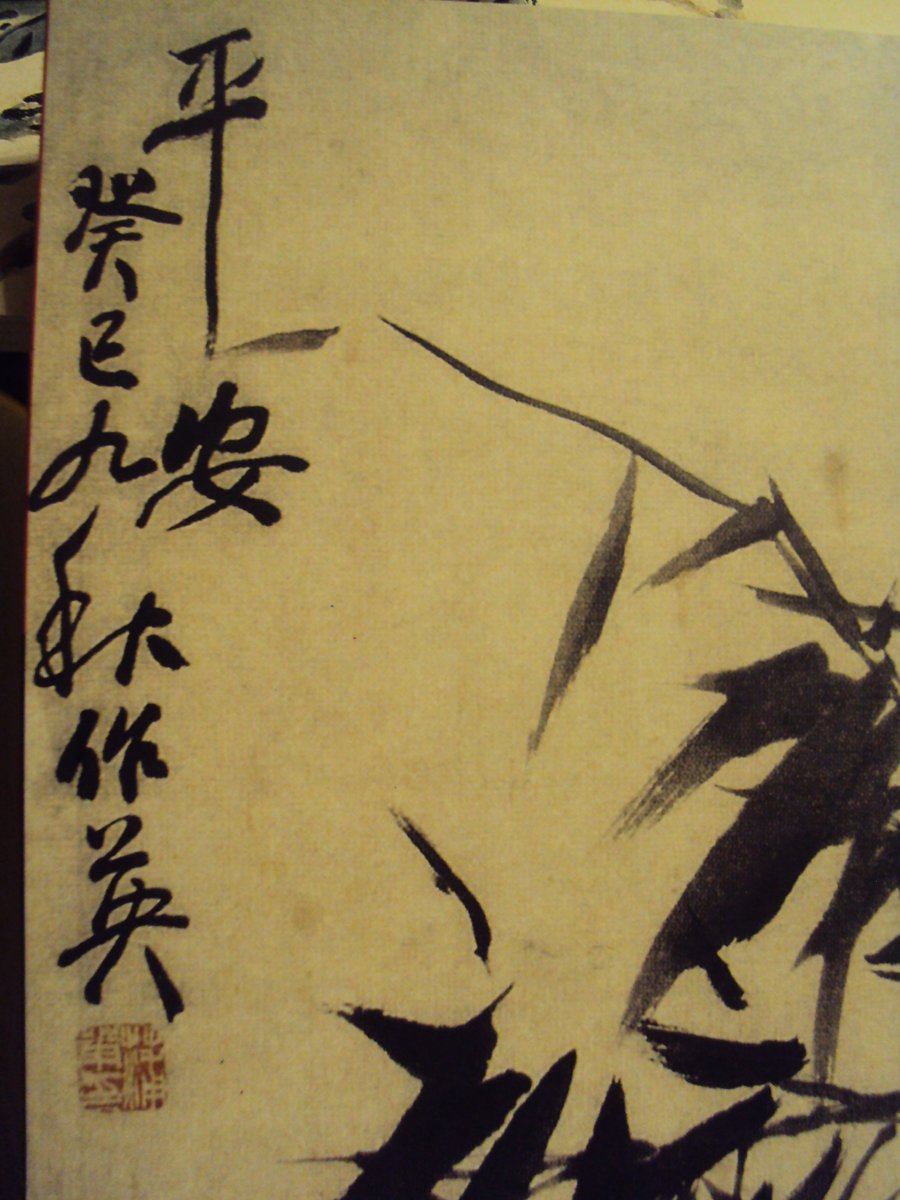 平安
癸巳九秋作英